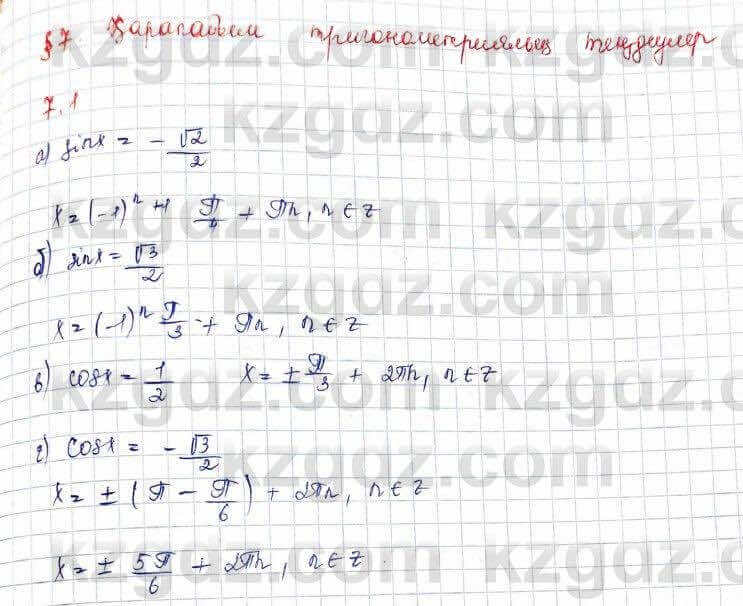 §7 Қарапайым тригонометриялық теңдеулер
7.1
а) sinx = - √2/2
x = (-1)ⁿ⁺¹ π/4 + πn, n ∈ Z
б) sinx = √3/2
x = (-1)ⁿ π/3 + πn, n ∈ Z
в) cosx = 1/2 x = ± π/3 + 2πn, n ∈ Z
г) cosx = - √3/2
x = ± (π - π/6) + 2πn, n ∈ Z
x = ± 5π/6 + 2πn, n ∈ Z.
kzgdz.com
kzgdz.com
kzgdz.com
kzgdz.com
kzgdz.com
kzgdz.com
kzgdz.com